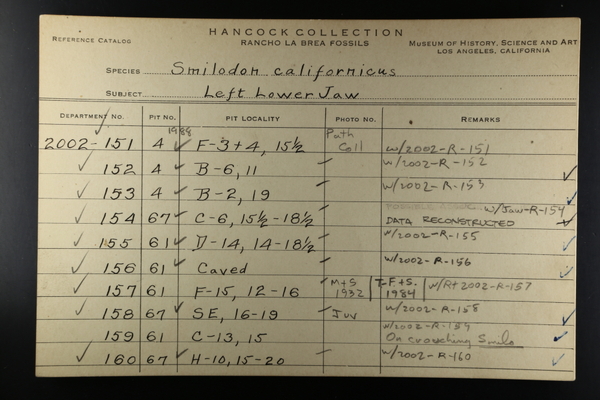 HANCOCK COLLECTION
REFERENCE CATALOG RANCHO LA BREA FOSSILS MUSEUM OF HISTORY, SCIENCE AND ART
LOS ANGELES, CALIFORNIA
SPECIES Smilodon californicus
SUBJECT Left Lower Jaw
DEPARTMENT NO. PIT NO. PIT LOCALITY PHOTO NO. REMARKS
1988 Path
2002-151 4 ✓ F-3+4, 15½ Coll w/2002-R-151
✓ 152 4 ✓ B-6, 11 w/2002-R-152 ✓
✓ 153 4 ✓ B-2, 19 w/2002-R-153 ✓
w/Jaw-R-154
✓ 154 67 ✓ C-6, 15½-18½ DATA RECONSTRUCTED ✓
✓ 155 61 ✓ D-14, 14-18½ w/2002-R-155 ✓
✓ 156 61 ✓ Caved w/2002-R-156 ✓
✓ 157 61 F-15, 12-16 M+S 1932 T-F.+S. 1984 w/R+2002-R-157
✓ 158 67 ✓ SE, 16-19 Juv w/2002-R-158 ✓
w/2002-R-159
159 61 C-13, 15 On crouching Smilo ✓
✓ 160 67 ✓ H-10, 15-20 w/2002-R-160 ✓